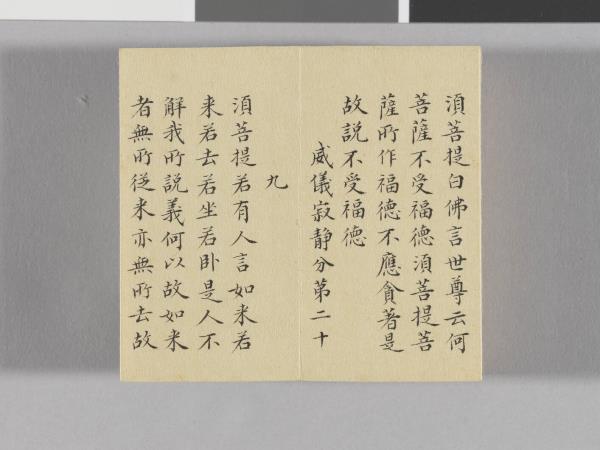 須菩提白佛言世尊云何
菩薩不受福德須菩提菩
薩所作福德不應貪著是
故説不受福德
威儀寂静分第二十
九
須菩提若有人言如来若
来若去若坐若卧是人不
解我所説義何以故如来
者無所從来亦無所去故